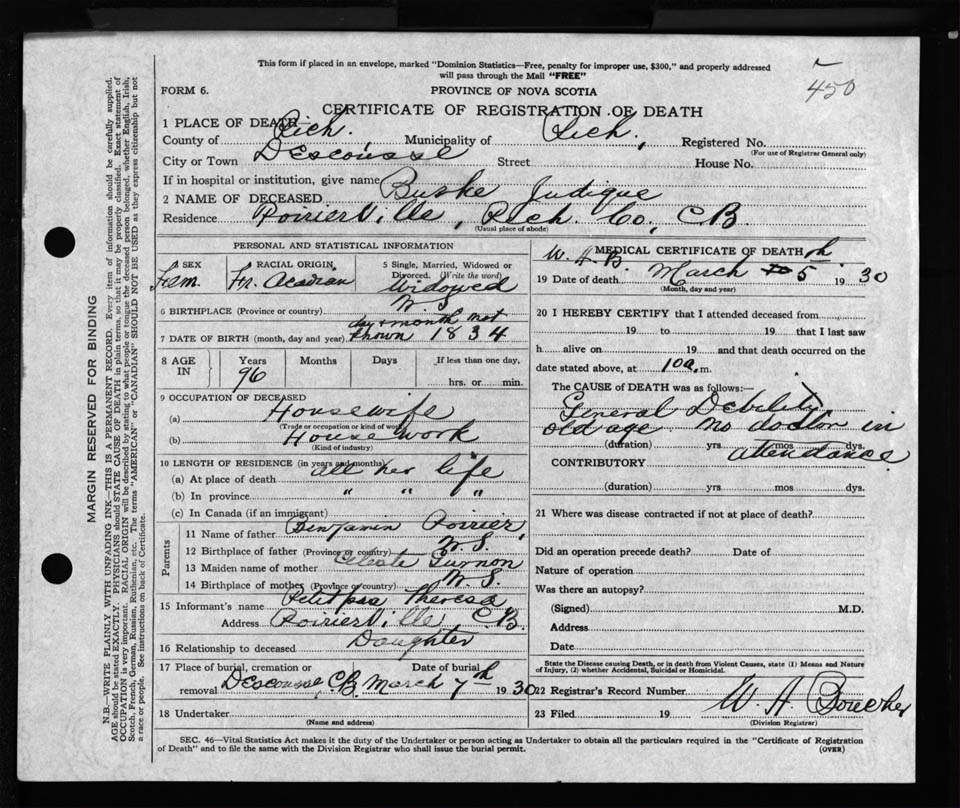 This form if placed in an envelope, marked "Dominion Statistics—Free, penalty for improper use, $300," and properly addressed
will pass through the Mail "FREE"
450
FORM 6.
PROVINCE OF NOVA SCOTIA
CERTIFICATE OF REGISTRATION OF DEATH
1 PLACE OF DEATH
County of Rich. Municipality of Rich. Registered No.
(For use of Registrar General only)
City or Town Descousse Street House No.
If in hospital or institution, give name
2 NAME OF DECEASED Bushe Judique
Residence Poirier Ville, Rich. Co, CB
(Usual place of abode)
PERSONAL AND STATISTICAL INFORMATION
SEX Fem.
RACIAL ORIGIN Fr. Acadian
5 Single, Married, Widowed or Divorced. (Write the word) Widowed
6 BIRTHPLACE (Province or country) N. S.
7 DATE OF BIRTH (month, day and year) day & month not known 1834
8 AGE IN Years 96 Months Days If less than one day, hrs. or min.
9 OCCUPATION OF DECEASED
(a) Housewife
(Trade or occupation or kind of work)
(b) House work
(Kind of industry)
10 LENGTH OF RESIDENCE (in years and months)
(a) At place of death all her life
(b) In province " " "
(c) In Canada (if an immigrant)
Parents
11 Name of father Benjamin Poirier,
12 Birthplace of father (Province or country) N. S.
13 Maiden name of mother Celeste
14 Birthplace of mother (Province or country) N. S.
15 Informant's name Petitpas Theresa
Address Poirier Ville, C.B.
16 Relationship to deceased Daughter
17 Place of burial, cremation or removal Descousse, C.B. Date of burial March 7th 1930
18 Undertaker
(Name and address)
MEDICAL CERTIFICATE OF DEATH
W. A. B.
19 Date of death March 5th 1930
(Month, day and year)
20 I HEREBY CERTIFY that I attended deceased from
19 to 19 that I last saw
h alive on 19 and that death occurred on
date stated above, at 10 a. m.
The CAUSE OF DEATH was as follows:—
General Debility
old age no doctor in
attendance
(duration) yrs. mos. dys.
CONTRIBUTORY
(duration) yrs. mos. dys.
21 Where was disease contracted if not at place of death?
Did an operation precede death? Date of
Nature of operation
Was there an autopsy?
(Signed) M.D.
Address
Date
State the Disease causing Death, or in death from Violent Causes, state (1) Means and Nature
of Injury, (2) whether Accidental, Suicidal or Homicidal.
22 Registrar's Record Number
23 Filed 19 W. A.
(Division Registrar)
SEC. 46—Vital Statistics Act makes it the duty of the Undertaker or person acting as Undertaker to obtain all the particulars required in the "Certificate of Registration
of Death" and to file the same with the Division Registrar who shall issue the burial permit.
(OVER)
MARGIN RESERVED FOR BINDING
N.B.—WRITE PLAINLY WITH UNFADING INK—THIS IS A PERMANENT RECORD. Every item of information should be carefully supplied.
AGE should be stated EXACTLY. PHYSICIANS should STATE CAUSE OF DEATH in plain terms, so that it may be properly classified. Exact statement of
OCCUPATION is very important. RACIAL ORIGIN will be described by stating to what people or tongue the deceased person belonged, whether English, Irish,
Scotch, French, German, Russian, Ruthenian, etc. The terms "AMERICAN" or "CANADIAN" SHOULD NOT BE USED as they express citizenship but not
a race or people. See instructions on back of Certificate.